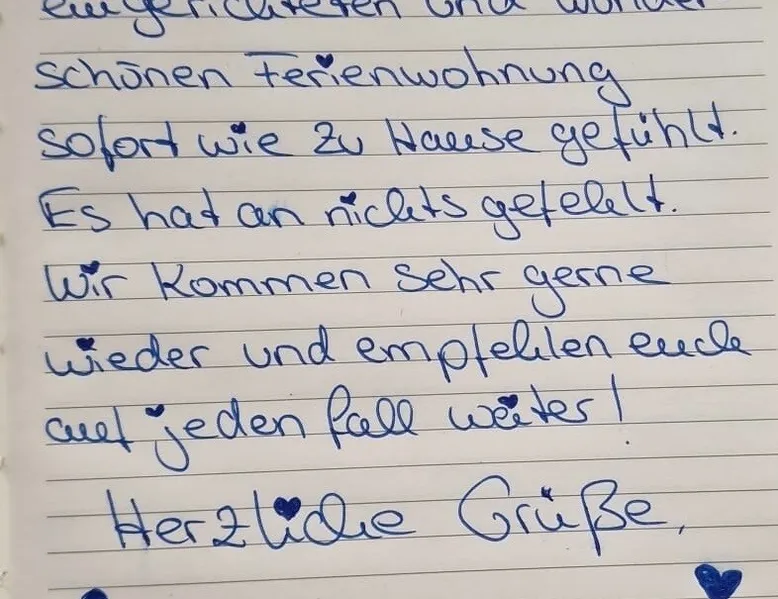 eingerichteten und wunder
schönen Ferienwohnung
sofort wie zu Hause gefühlt.
Es hat an nichts gefehlt.
Wir kommen sehr gerne
wieder und empfehlen euch
auf jeden fall weiter!
Herzliche Grüße,